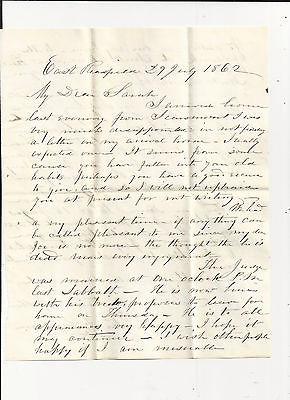 East 29 July 1862
My Dear Sarah
I arrived home
last evening from Searsmont I was
very much disappointed in not finding
a letter on my arrival home - I really
expected one it seemed from some
cause you have fallen into your old
habits perhaps you have a good excuse
to give and so I will not upbraid
you at present for not writing
I had
a very pleasant time if anything can
be called pleasant to me since my dear
Joe is no more - the thought that he is
dead mars every enjoyment
The Judge
was married at one oclock P.M.
last Sabbath - He is now here
with his proposes to leave for
home on Thursday - He is to all
appearances very happy - I hope it
may continue - I wish other people
happy if I am miserable